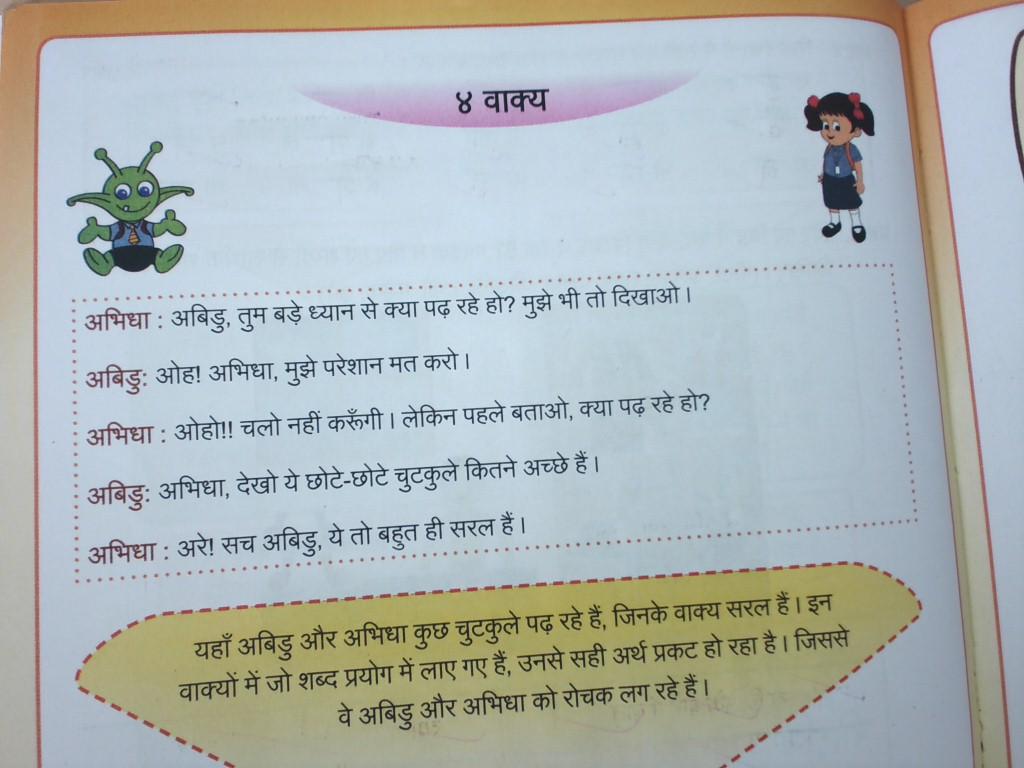 ४ वाक्य
अभिधा : अबिडु, तुम बड़े ध्यान से क्या पढ़ रहे हो? मुझे भी तो दिखाओ।
अबिडु: ओह! अभिधा, मुझे परेशान मत करो।
अभिधा : ओहो!! चलो नहीं करूँगी। लेकिन पहले बताओ, क्या पढ़ रहे हो?
अबिडु: अभिधा, देखो ये छोटे-छोटे चुटकुले कितने अच्छे हैं।
अभिधा : अरे! सच अबिडु, ये तो बहुत ही सरल हैं।
यहाँ अबिडु और अभिधा कुछ चुटकुले पढ़ रहे हैं, जिनके वाक्य सरल हैं। इन
वाक्यों में जो शब्द प्रयोग में लाए गए हैं, उनसे सही अर्थ प्रकट हो रहा है। जिससे
वे अबिडु और अभिधा को रोचक लग रहे हैं।